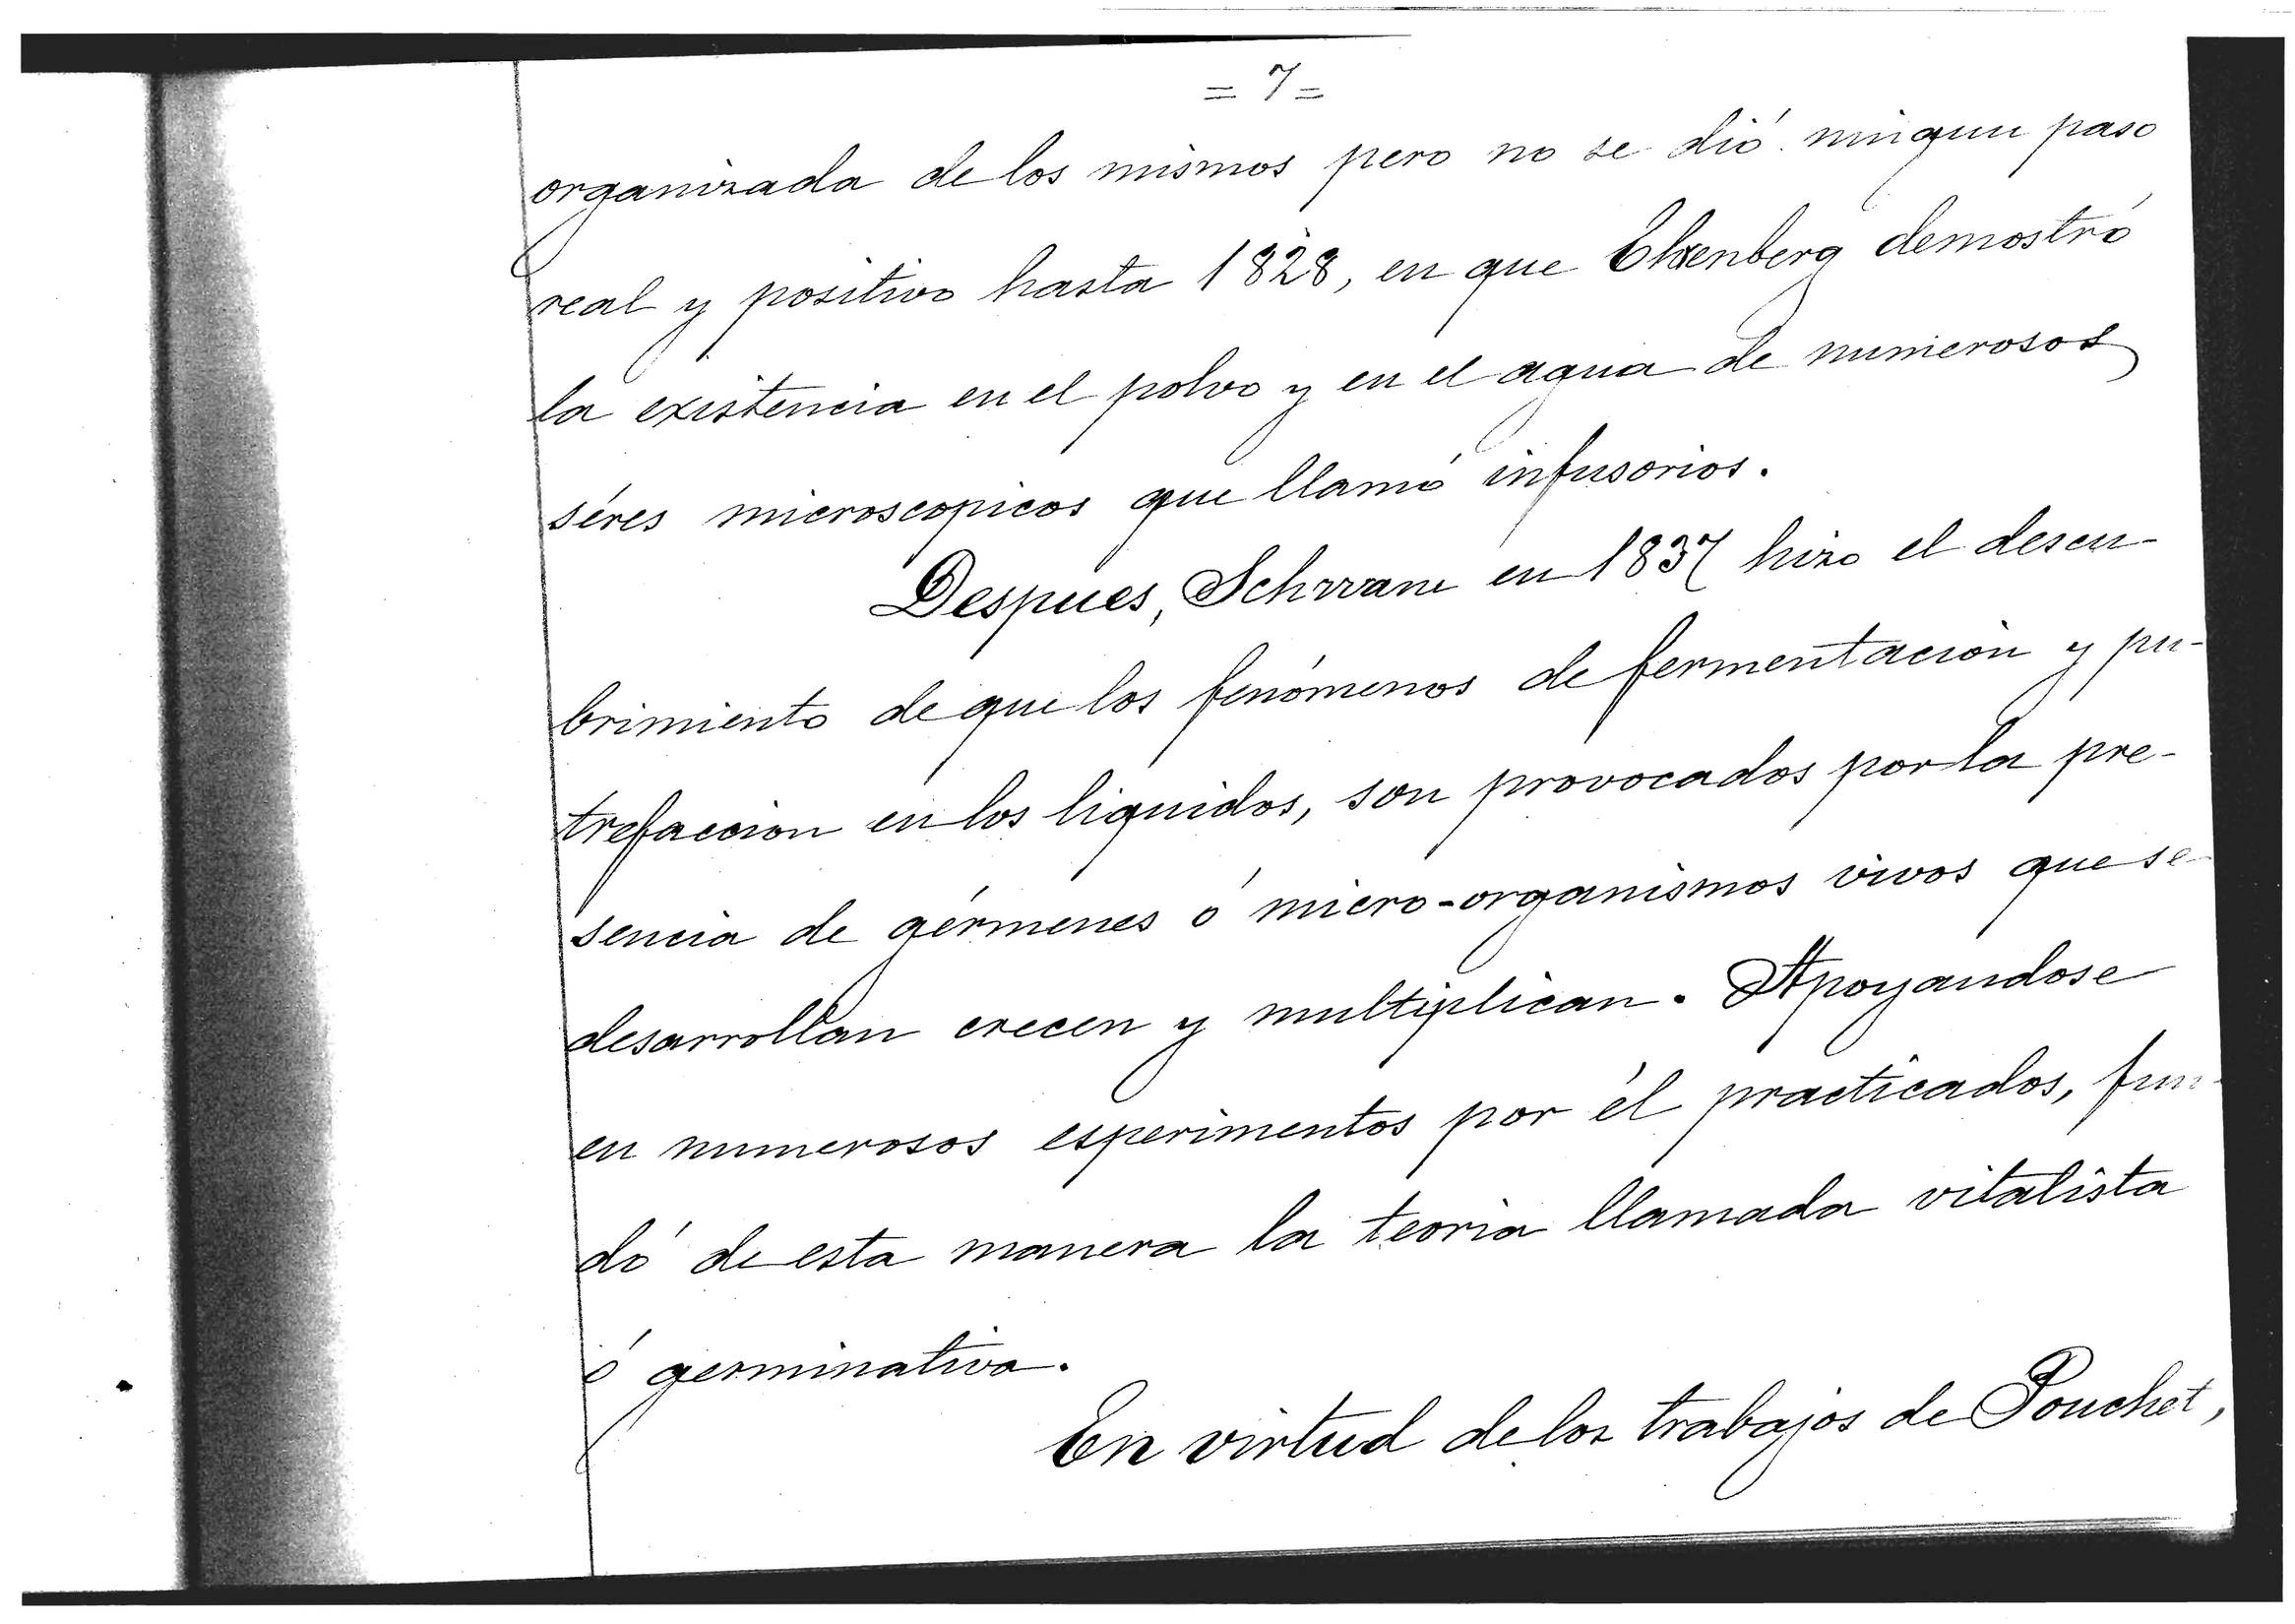 = 7 =
organizada de los mismos pero no se dió ningun paso
real y positivo hasta 1828, en que Ehrenberg demostró
la existencia en el polvo y en el agua de numerosos
séres microscopicos que llamó infusorios.
Despues, Schwann en 1837 hizo el descu-
brimiento de que los fenómenos de fermentación y pu-
trefaccion en los liquidos, son provocados por la pre-
sencia de gérmenes ó micro-organismos vivos que se
desarrollan crecen y multiplican. Apoyandose
en numerosos esperimentos por él practicados, fun-
dó de esta manera la teoria llamada vitalista
ó germinativa.
En virtud de los trabajos de Pouchet,